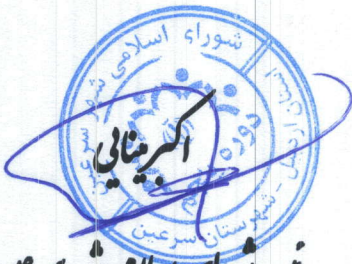 شورای اسلامی شهر سرعین
استان اردبیل - شهرستان سرعین
دوره
اکبر مینایی